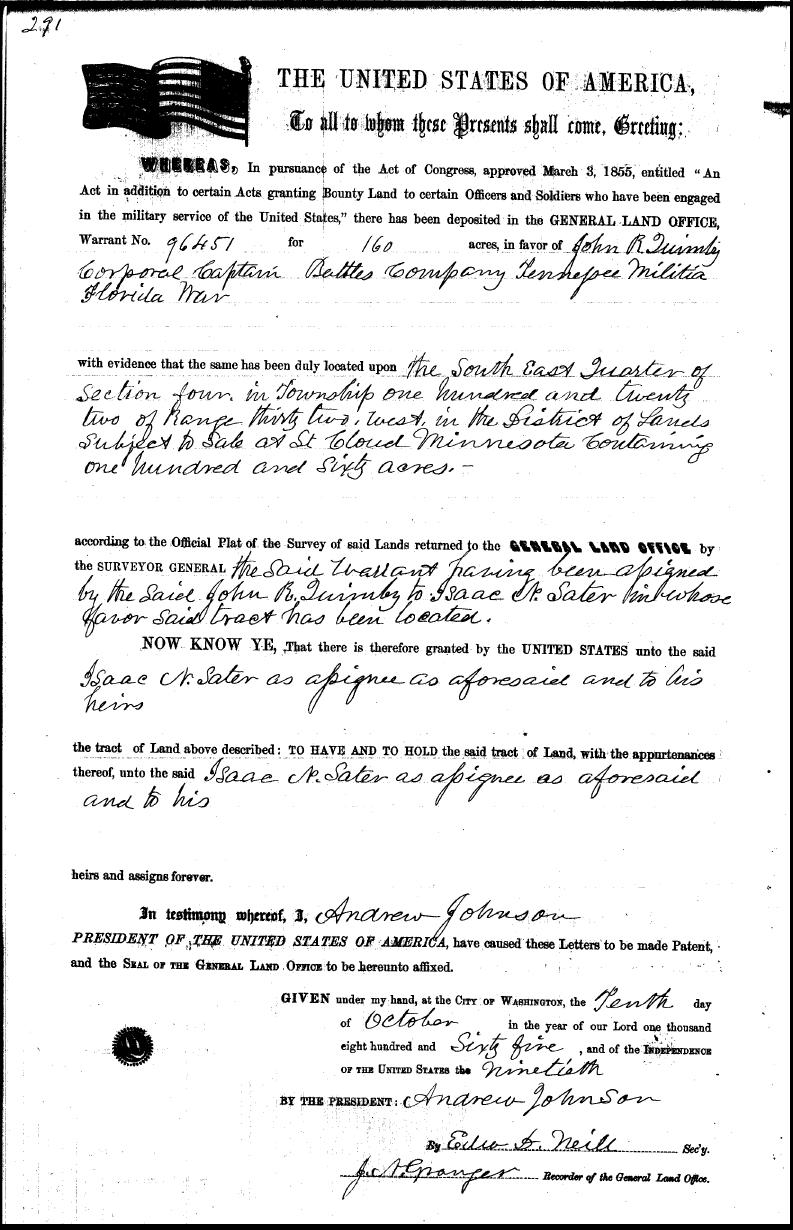 291
THE UNITED STATES OF AMERICA,
To all to whom these Presents shall come, Greeting:
WHEREAS, In pursuance of the Act of Congress, approved March 3, 1855, entitled “An
Act in addition to certain Acts granting Bounty Land to certain Officers and Soldiers who have been engaged
in the military service of the United States,” there has been deposited in the GENERAL LAND OFFICE,
Warrant No. 96451 for 160 acres, in favor of John R. Quimby
Corporal Captain Battles Company Tennessee Militia
Florida War
with evidence that the same has been duly located upon the South East Quarter of
Section four, in Township one hundred and twenty
two of Range thirty two, West, in the District of Lands
Subject to Sale at St Cloud Minnesota Containing
one hundred and Sixty acres. –
according to the Official Plat of the Survey of said Lands returned to the GENERAL LAND OFFICE by
the SURVEYOR GENERAL the said Warrant having been assigned
by the said John R. Quimby to Isaac N. Sater in whose
favor said tract has been located.
NOW KNOW YE, That there is therefore granted by the UNITED STATES unto the said
Isaac N. Sater as assignee as aforesaid and to his
heirs
the tract of Land above described: TO HAVE AND TO HOLD the said tract of Land, with the appurtenances
thereof, unto the said Isaac N. Sater as assignee as aforesaid
and to his
heirs and assigns forever.
In testimony whereof, I, Andrew Johnson
PRESIDENT OF THE UNITED STATES OF AMERICA, have caused these Letters to be made Patent,
and the SEAL OF THE GENERAL LAND OFFICE to be hereunto affixed.
GIVEN under my hand, at the CITY OF WASHINGTON, the Tenth day
of October in the year of our Lord one thousand
eight hundred and Sixty five, and of the INDEPENDENCE
OF THE UNITED STATES the Ninetieth
BY THE PRESIDENT: Andrew Johnson
By Edw D. Neill Sec'y.
J. N. Granger Recorder of the General Land Office.